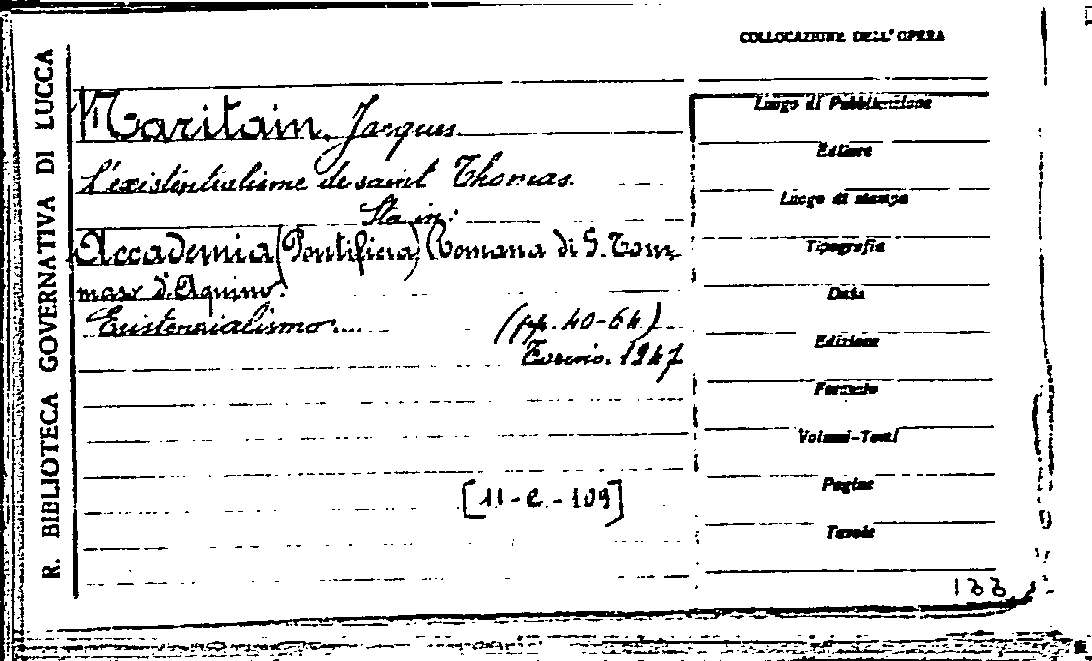 R. BIBLIOTECA GOVERNATIVA DI LUCCA
COLLOCAZIONE DELL' OPERA
Maritain, Jacques
L'existentialisme de saint Thomas.
Sta in:
Accademia (Pontificia) Romana di S. Tom-
maso d'Aquino.
Esistenzialismo....
(pp. 40-64)
Torino. 1947
[11-e-109]
Luogo di Pubblicazione
Editore
Luogo di stampa
Tipografia
Data
Edizione
Formato
Volumi-Tomi
Pagine
Tavole